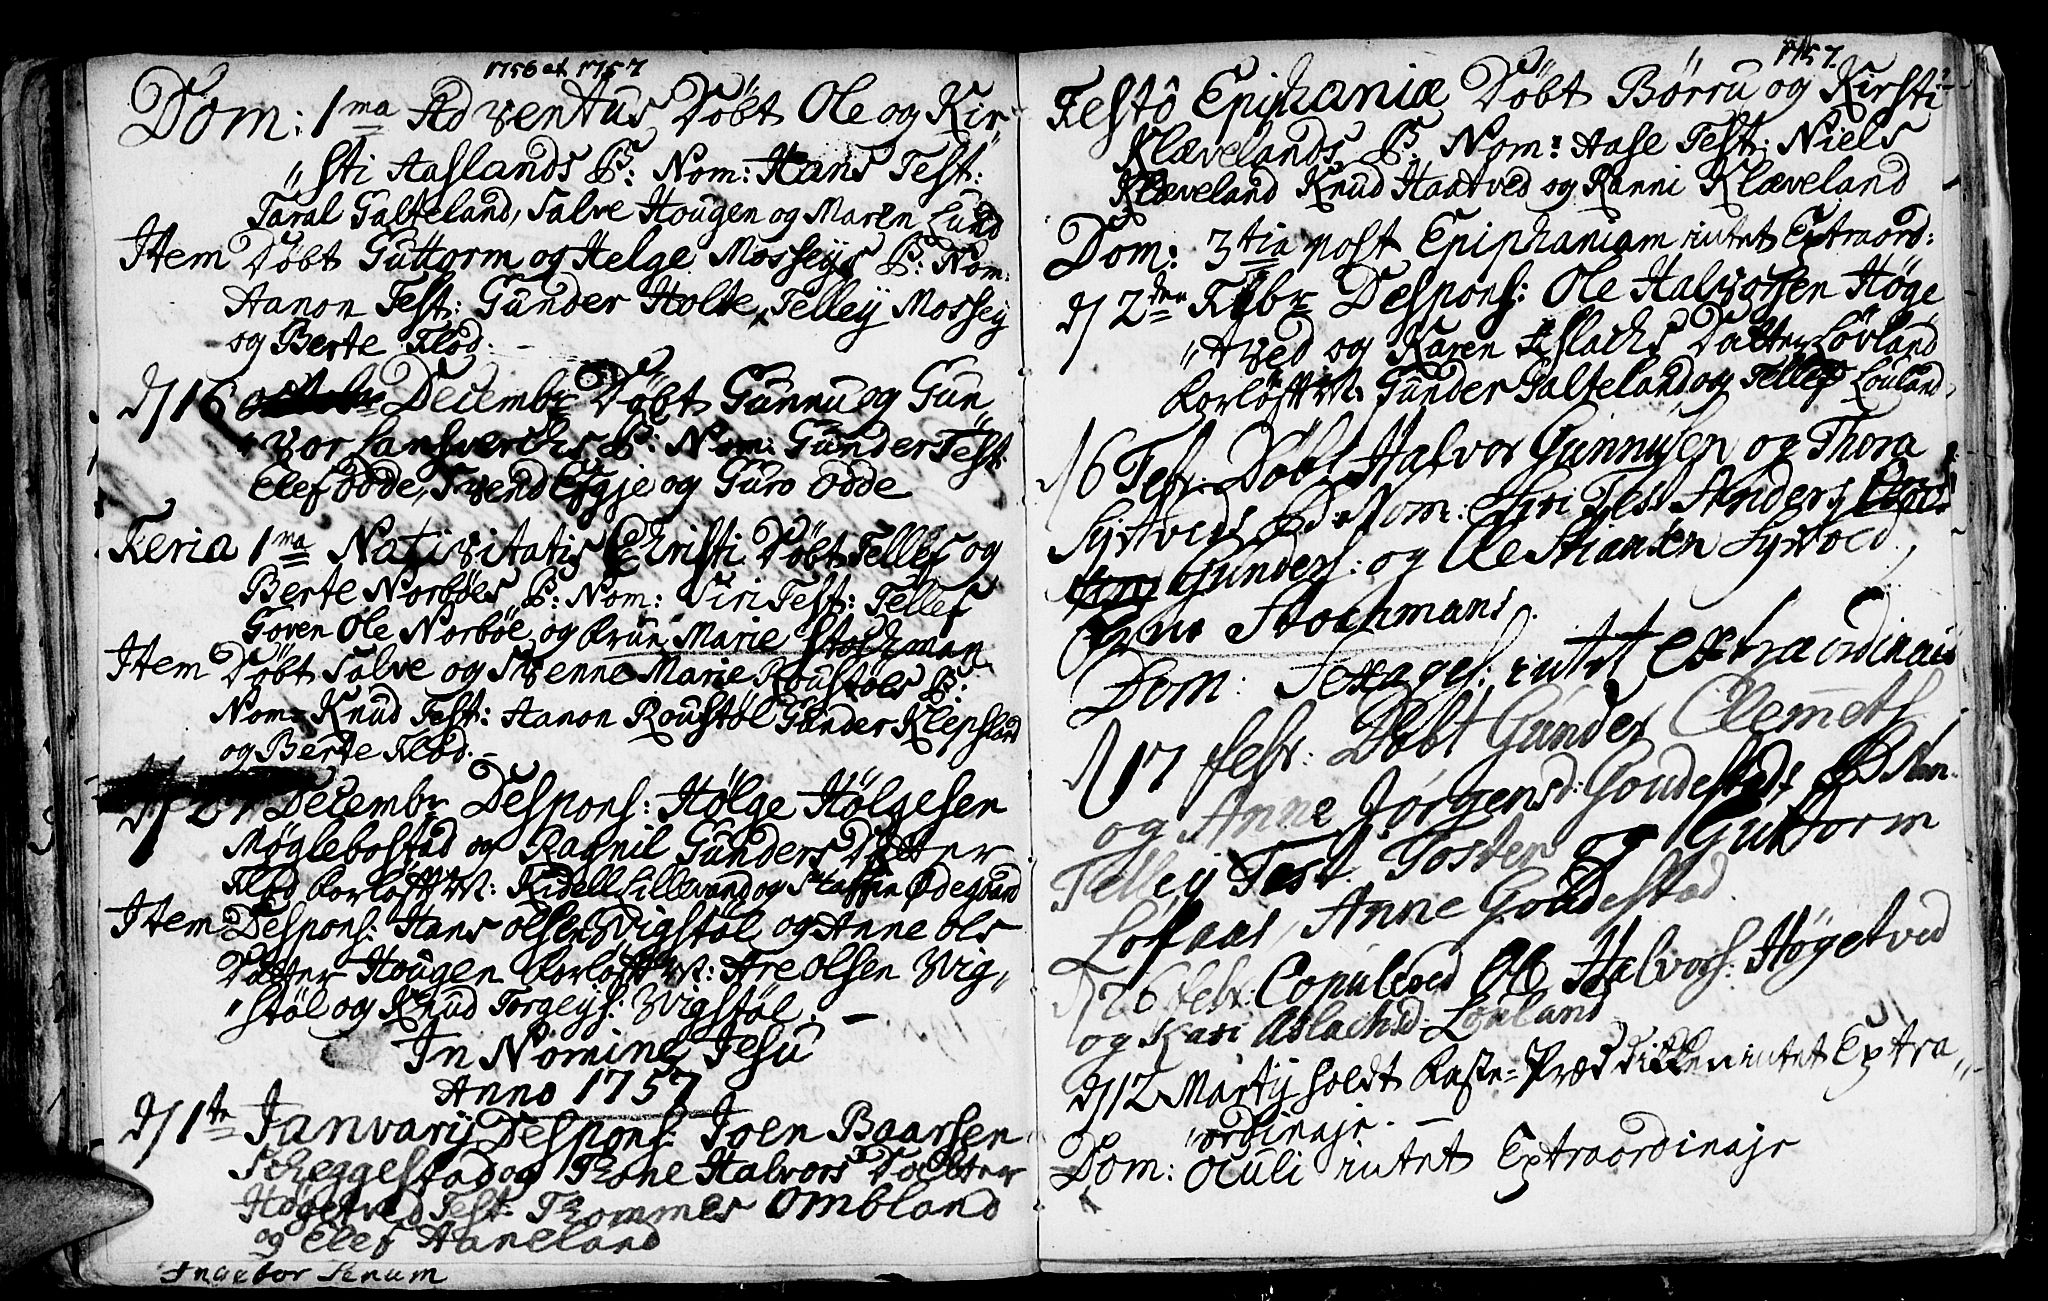 1756 et 1757
Dom: 1ma Adventus Döbt Ole og Kir-
"sti Aaslands B: Nom: Hans Test:
Taral Galteland, Salve Hougen og Maren Lund
Item Döbt Guttorm og Helge Mosseys B: Nom:
Aanon Test: Gunder Holte, Telley Mossey
og Berte Flod. -
d 16 Decembr Döbt Gunnu og Gun"
"vor Lanswerchs B: Nom: Gunder Test:
Elef Odde, Svend Efgje og Guro Odde
Feria 1ma Nativitatis Christi Döbt Tellef og
Berte Norböes B: Nom: Siri Test: Tellef
Goven Ole Norböe og Frun Marie Stochman
Item Döbt Salve og Svenne Marie Roustöls B:
Nom: Knud Test: Aanon Roustöl Gunder Klepsland
og Berte Flod. -
Decembr Despons: Hölge Hölgesen
Möglebostad og Ragnil Gunders Datter
Flod Forlöft M: Kidell Lillevand og Staffen Ödegaard
Item Despons: Hans Olsen Vigstöl og Anne Ols
Datter Hougen Forlöft M: Are Olsen Vig"
"stöl og Knud Torgeys: Vigstöl. -
In Nomine Jesu
Anno 1757
d 1te Januarij Despons: Joen Baarsen
Scheggestad og Thone Halvors Datter
Högetved Test: Thommes Ombland
og Elef Haneland
Ingebor Senum
1757
Festô Epiphaniæ Döbt Börru og Kirsti
Klævelands B. Nom: Aase Test: Niels
Klæveland Knud Haatved og Ranni Klæveland
Dom: 3tia post Epiphaniam intet Extraord:
d 2den Febr Despons: Ole Halvorsen Höge"
"tved og Karen Aslachs Datter Lövland
Forlöft M: Gunder Galteland og Tellef Louland.
d 6 Febr. Döbt Halvor Gunnusen og Thora
Syrtveds B Nom: Siri Test Anders
Gunders: og Ole Stiansen Syrtved,
Stochmans.
Dom: Sexages: intet extraordinair
d 17 febr: Döbt Gunder Clemets
og Anne Jörgensd: Goudestads B Nom.
Telley Test. Torsten og Guttorm
Lofaas, Anne Goudestad.
d 26 febr: Copulered Ole Halvors: Högetved
og Kari Aslachsd: Louland
d 12 Martij holdt Faste-Præd ikken intet Extra-"
"ordinajr. -
Dom: Oculi intet Extraordinajr